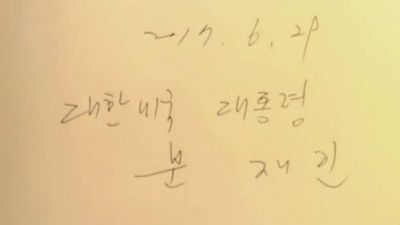 2017. 6. 29
대한미국 대통령
문 재인